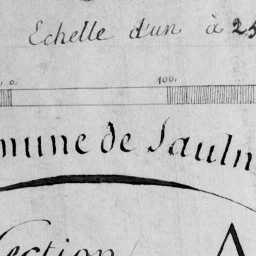 Echelle d'un à 25
0. 100.
mune de Sauln
Section A